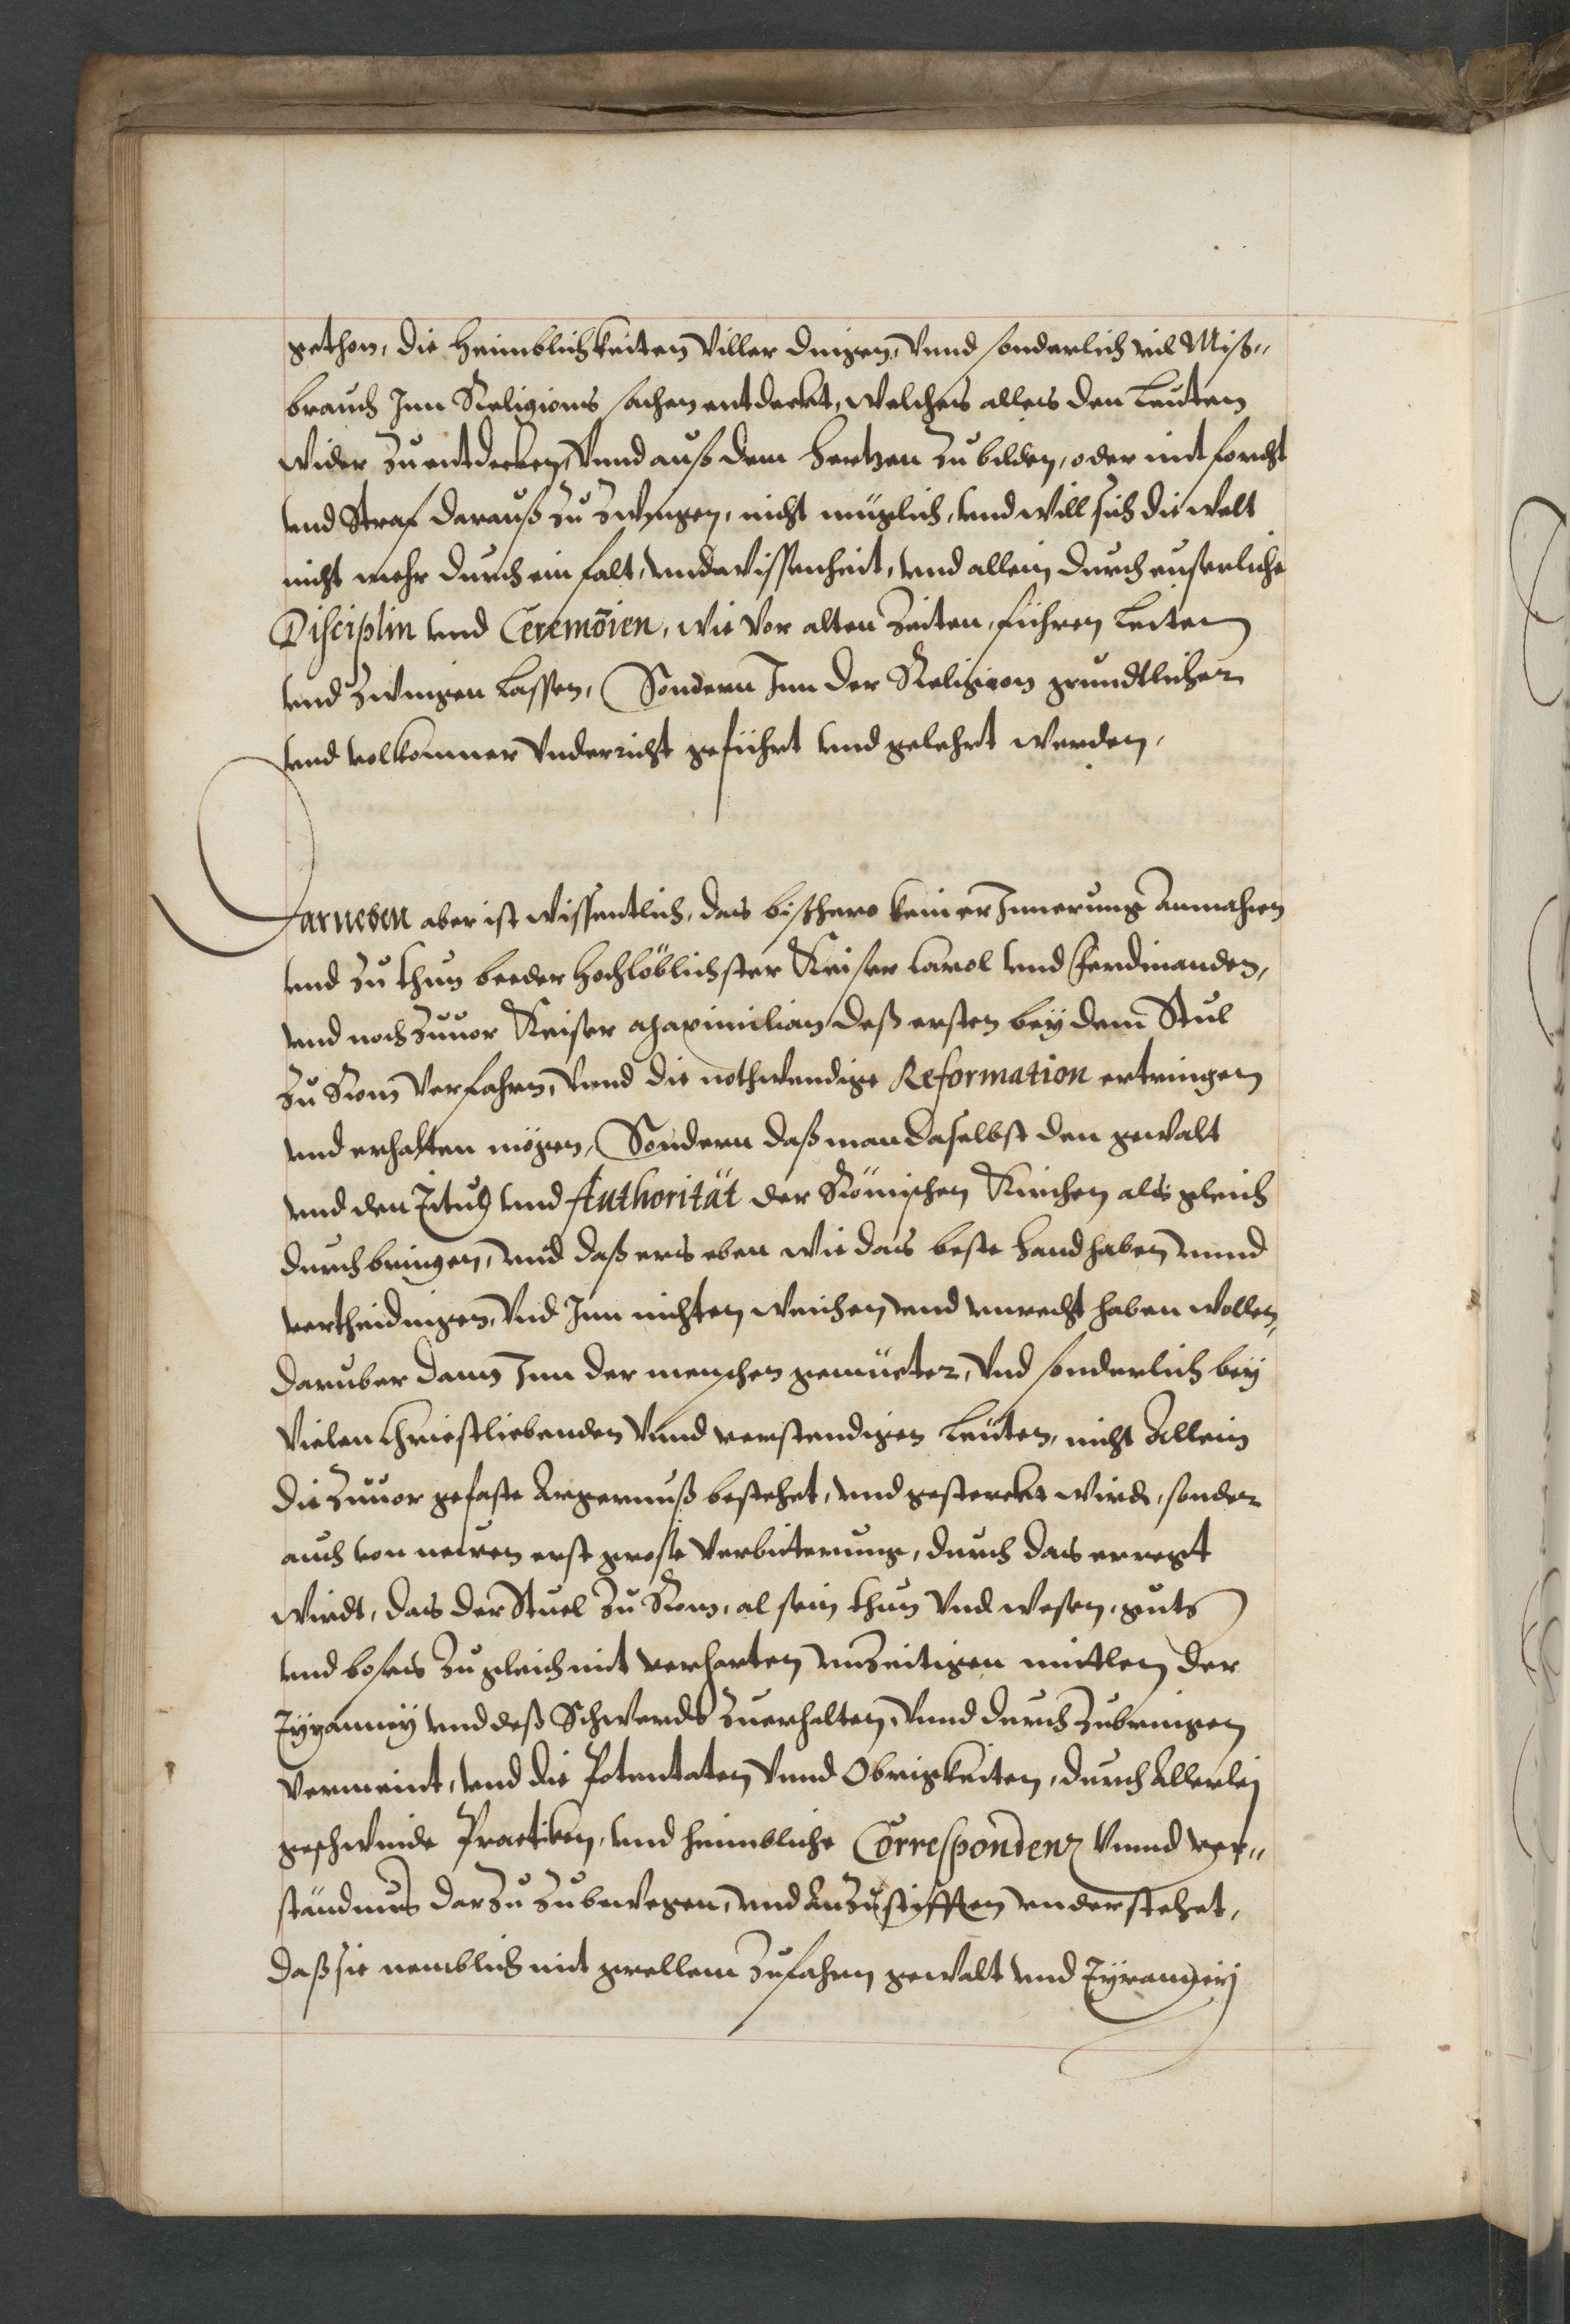 gethon, die heimblichkeiten viller dingen, vnnd sonderlich vil Miß„
brauch Inn Religions sachen entdeckt, welches alles den Leuten
wider zu entdecken, vnnd auß dem hertzen zu bilden, oder mit forcht
vnd Straf darauß zu zwingen, nicht müglich, vnd will sich die welt
nicht mehr durch einfalt, vnd wissenheit, vnd allein durch euserliche
Disciplin vnd Ceremōien, wie vor alten Zeiten, führen leiten
vnd zwingen lassen, Sondern Inn der Religion grundtlicher
vnd volkommer vnderricht geführt vnd gelehrt werden,
Darneben aber ist wissentlich, das bißhero kein erInnerung Anmahen
vnd zu thun beeder hochlöblichster Keiser Carol vnd Ferdinanden,
vnd noch zuuor Keiser Maximilian deß ersten bey dem Stul
zu Rom verfahen, vnnd die nothwendige Reformation ertringen
vnd erhalten mögen, Sondern daß man daselbst den gewalt
vnd den Titul vnd Authorität der Römischen Kirchen als gleich
durchbringen, vnd daß ers eben wie das beste handhaben vnnd
vertheidingen, vnd Inn nichten weichen vnd vnrecht haben wollen,
daruber dann Inn der menschen gemüeter, vnd sonderlich bey
vielen Christliebenden vnnd verstendigen leüten, nicht Allein
die zuuor gefaste Argernuß bestehet, vnd gesterckt wirdt, sonder
auch von neuen erst grosse verbitterung, durch das erregt
wirdt, das der Stuel zu Rom, al sein thun vnd wesen, guts
vnd boses zugleich mit verharten vnzeitigen mittlen der
Tyranney vnd deß Schwerdts zuerhalten, vnnd durch zubringen
vermeint, vnd die Potentaten vnnd Obrigkeiten, durch Allerley
geschwinde Practiken, vnd heimbliche Correspondenz vnnd ver„
ständnus darzu zubewegen, vnd Anzustifften vnderstehet,
daß sie nemblich mit grellem zufahren gewalt vnd Tyranneij